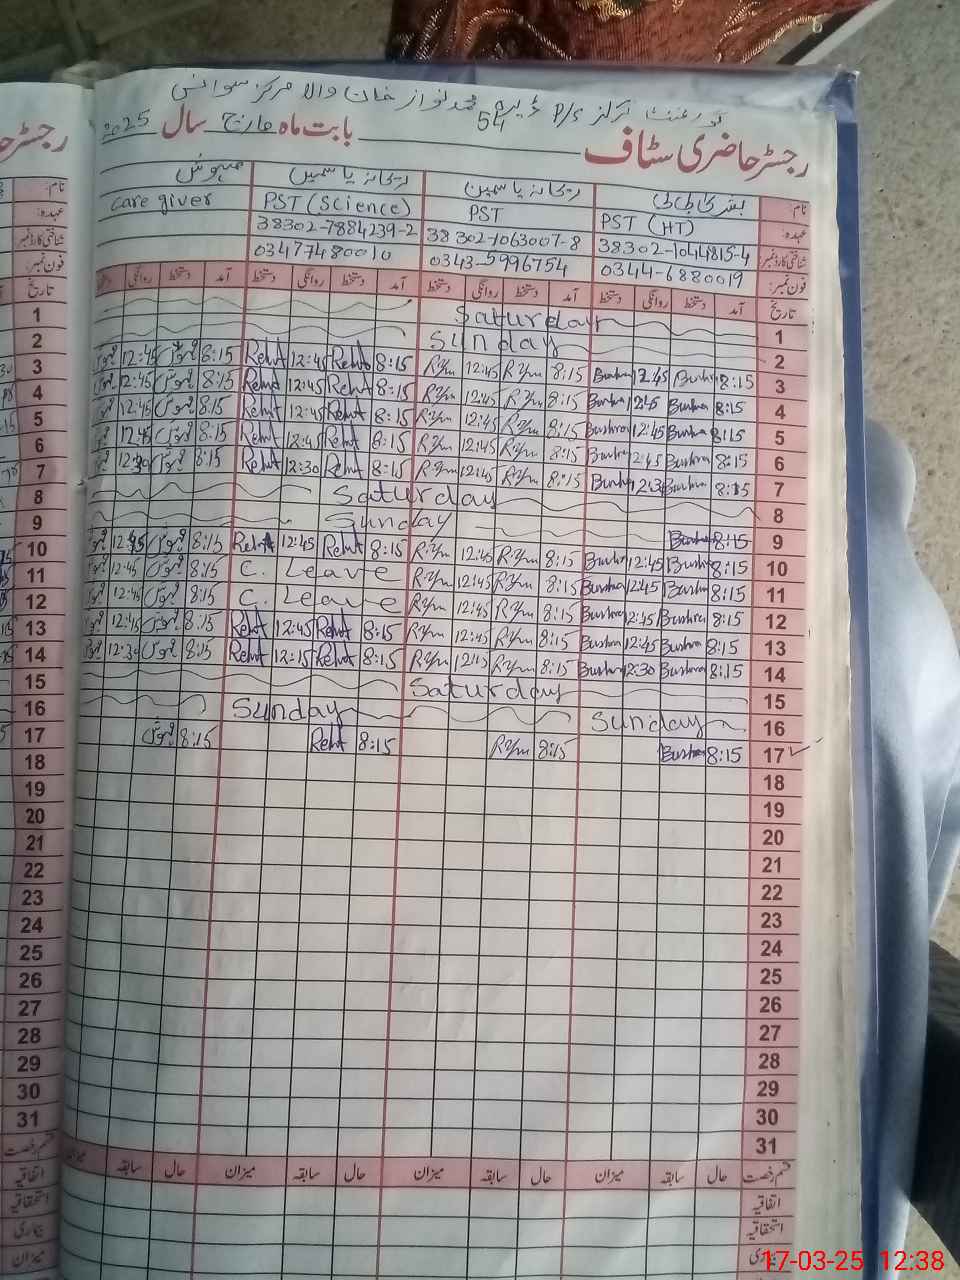 گورنمنٹ گرلز P/S ڈیرہ محمد نواز خان والا مرکز سوانس
54
رجسٹر حاضری سٹاف بابت ماہ مارچ سال 2025
نام: بشریٰ بی بی ریحانہ یاسمین ریحانہ یاسمین مہوش
عہدہ: PST (HT) PST PST (Science) Care giver
شناختی کارڈ نمبر 38302-1044815-4 38302-1063007-8 38302-7884239-2
فون نمبر: 0344-6880019 0343-5996754 03477480010
تاریخ آمد دستخط روانگی دستخط آمد دستخط روانگی دستخط آمد دستخط روانگی دستخط آمد دستخط روانگی
1 Saturday
2 Sunday
3 8:15 Bushra 12:45 Bushra 8:15 R.Ym 12:45 R.Ym 8:15 Rehat 12:45 Rehat 8:15 مہوش 12:45
4 8:15 Bushra 12:45 Bushra 8:15 R.Ym 12:45 R.Ym 8:15 Rehat 12:45 Rehat 8:15 مہوش 12:45
5 8:15 Bushra 12:45 Bushra 8:15 R.Ym 12:45 R.Ym 8:15 Rehat 12:45 Rehat 8:15 مہوش 12:45
6 8:15 Bushra 12:45 Bushra 8:15 R.Ym 12:45 R.Ym 8:15 Rehat 12:45 Rehat 8:15 مہوش 12:45
7 8:15 Bushra 12:30 Bushra 8:15 R.Ym 12:45 R.Ym 8:15 Rehat 12:30 Rehat 8:15 مہوش 12:30
8 Saturday
9 8:15 Bushra Sunday
10 8:15 Bushra 12:45 Bushra 8:15 R.Ym 12:45 R.Ym 8:15 Rehat 12:45 Rehat 8:15 مہوش 12:45
11 8:15 Bushra 12:45 Bushra 8:15 R.Ym 12:45 R.Ym C. Leave 8:15 مہوش 12:45
12 8:15 Bushra 12:45 Bushra 8:15 R.Ym 12:45 R.Ym C. Leave 8:15 مہوش 12:45
13 8:15 Bushra 12:45 Bushra 8:15 R.Ym 12:45 R.Ym 8:15 Rehat 12:45 Rehat 8:15 مہوش 12:45
14 8:15 Bushra 12:30 Bushra 8:15 R.Ym 12:15 R.Ym 8:15 Rehat 12:15 Rehat 8:15 مہوش 12:30
15 Saturday
16 Sunday Sunday
17 8:15 Bushra 8:15 R.Ym 8:15 Rehat 8:15 مہوش
18
19
20
21
22
23
24
25
26
27
28
29
30
31
قسم رخصت حال سابقہ میزان حال سابقہ میزان حال سابقہ میزان حال سابقہ میزان
اتفاقیہ
استحقاقیہ
بیماری
17-03-25 12:38